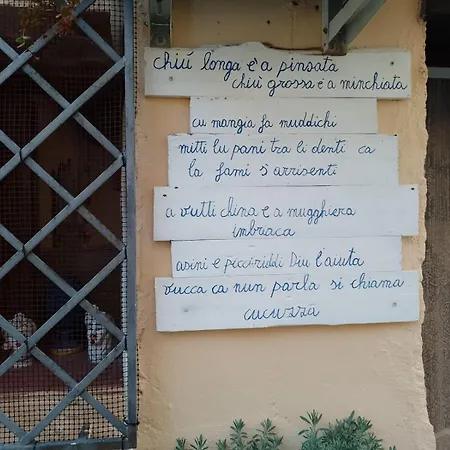 chiú longa é a pinsata
chiù grossa é a minchiata
cu mangia fa muddichi
mitti lu pani tra li denti ca
la fami s'arrisenti
a vutti china e a mugghiera
imbriaca
asini e picciriddi Diu l'aiuta
vucca ca nun parla si chiama
cucuzza